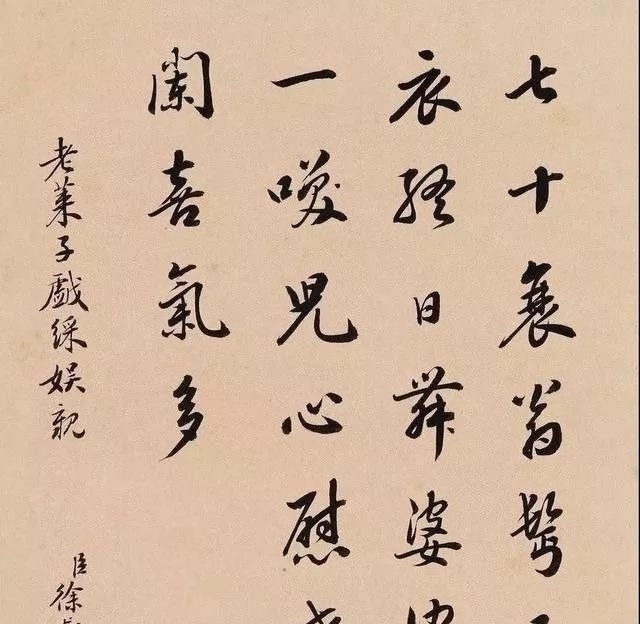 七十衰翁
衣終日舞婆
一咲兒心慰
闌喜氣多
老萊子戲綵娛親
臣徐